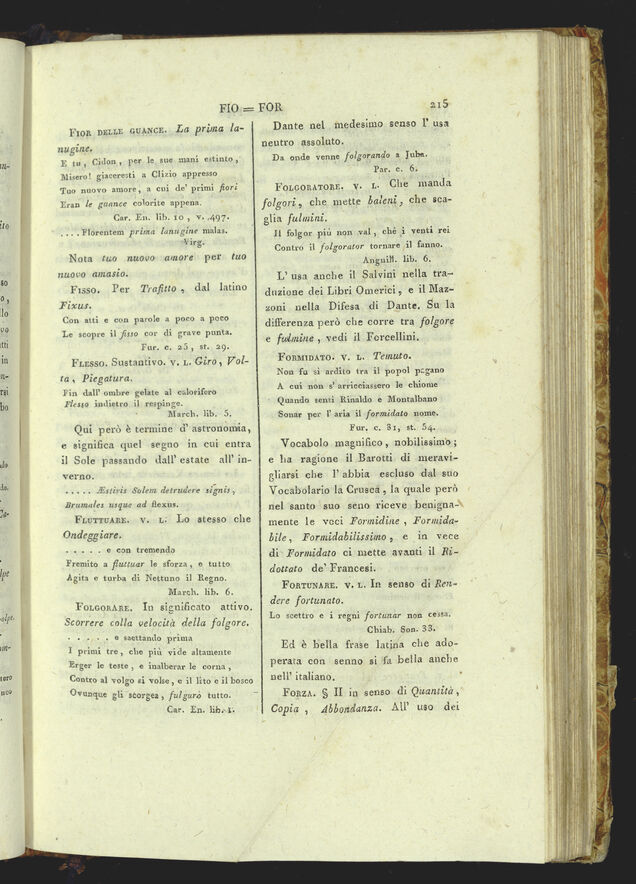 FIO = FOR
215
FIOR DELLE GUANCE. La prima la-
nugine.
E tu, Cidon, per le sue mani estinto,
Misero! giaceresti a Clizio appresso
Tuo nuovo amore, a cui de' primi fiori
Eran le guance colorite appena.
Car. En. lib. 10, v. 497.
.... Florentem prima lanugine malas.
Virg.
Nota tuo nuovo amore per tuo
nuovo amasio.
FISSO. Per Trafitto, dal latino
Fixus.
Con atti e con parole a poco a poco
Le scopre il fisso cor di grave punta.
Fur. c. 25, st. 29.
FLESSO. Sustantivo. V. L. Giro, Vol-
ta, Piegatura.
Fin dall' ombre gelate al calorifero
Flesso indietro il respinge.
March. lib. 5.
Qui però è termine d' astronomia,
e significa quel segno in cui entra
il Sole passando dall' estate all' in-
verno.
..... Æstivis Solem detrudere signis,
Brumales usque ad flexus.
FLUTTUARE. V. L. Lo stesso che
Ondeggiare.
..... e con tremendo
Fremito a fluttuar le sforza, e tutto
Agita e turba di Nettuno il Regno.
March. lib. 6.
FOLGORARE. In significato attivo.
Scorrere colla velocità della folgore.
..... e saettando prima
I primi tre, che più vide altamente
Erger le teste, e inalberar le corna,
Contro al volgo si volse, e il lito e il bosco
Ovunque gli scorgea, fulgurò tutto.
Car. En. lib. 1.
Dante nel medesimo senso l' usa
neutro assoluto.
Da onde venne folgorando a Juba.
Par. c. 6.
FOLGORATORE. V. L. Che manda
folgori, che mette baleni, che sca-
glia fulmini.
Il folgor più non val, chè i venti rei
Contro il folgorator tornare il fanno.
Anguill. lib. 6.
L' usa anche il Salvini nella tra-
duzione dei Libri Omerici, e il Maz-
zoni nella Difesa di Dante. Su la
differenza però che corre tra folgore
e fulmine, vedi il Forcellini.
FORMIDATO. V. L. Temuto.
Non fu sì ardito tra il popol pagano
A cui non s' arricciassero le chiome
Quando sentì Rinaldo e Montalbano
Sonar per l' aria il formidato nome.
Fur. c. 31, st. 54.
Vocabolo magnifico, nobilissimo;
e ha ragione il Barotti di meravi-
gliarsi che l' abbia escluso dal suo
Vocabolario la Crusca, la quale però
nel santo suo seno riceve benigna-
mente le voci Formidine, Formida-
bile, Formidabilissimo, e in vece
di Formidato ci mette avanti il Ri-
dottato de' Francesi.
FORTUNARE. V. L. In senso di Ren-
dere fortunato.
Lo scettro e i regni fortunar non cessa.
Chiab. Son. 33.
Ed è bella frase latina che ado-
perata con senno si fa bella anche
nell' italiano.
FORZA. § II in senso di Quantità,
Copia, Abbondanza. All' uso dei